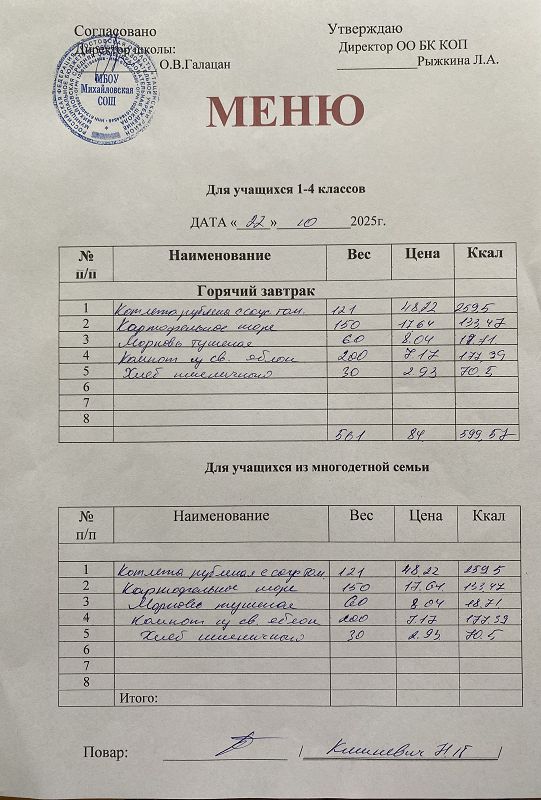 Согласовано Утверждаю
Директор школы: Директор ОО БК КОП
О.В.Галацан Рыжкина Л.А.
МБОУ
Михайловская
СОШ
МЕНЮ
Для учащихся 1-4 классов
ДАТА «22» 10 2025г.
№ п/п Наименование Вес Цена Ккал
Горячий завтрак
1 Котлета рубленая с соусом 121 48,22 259,5
2 Картофельное пюре 150 17,64 133,47
3 Морковь тушеная 60 8,04 18,71
4 Компот из св. яблок 200 7,17 177,39
5 Хлеб пшеничного 30 2.93 70.5
6
7
8
561 84 599,57
Для учащихся из многодетной семьи
№ п/п Наименование Вес Цена Ккал
1 Котлета рубленая с соусом 121 48,22 259,5
2 Картофельное пюре 150 17,64 133,47
3 Морковь тушеная 60 8,04 18,71
4 Компот из св. яблок 200 7,17 177,39
5 Хлеб пшеничного 30 2.93 70.5
6
7
8
Итого:
Повар: